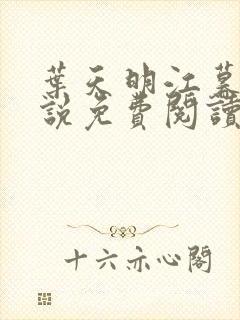 葉天明江慕
說免費閱讀
十六亦心閣